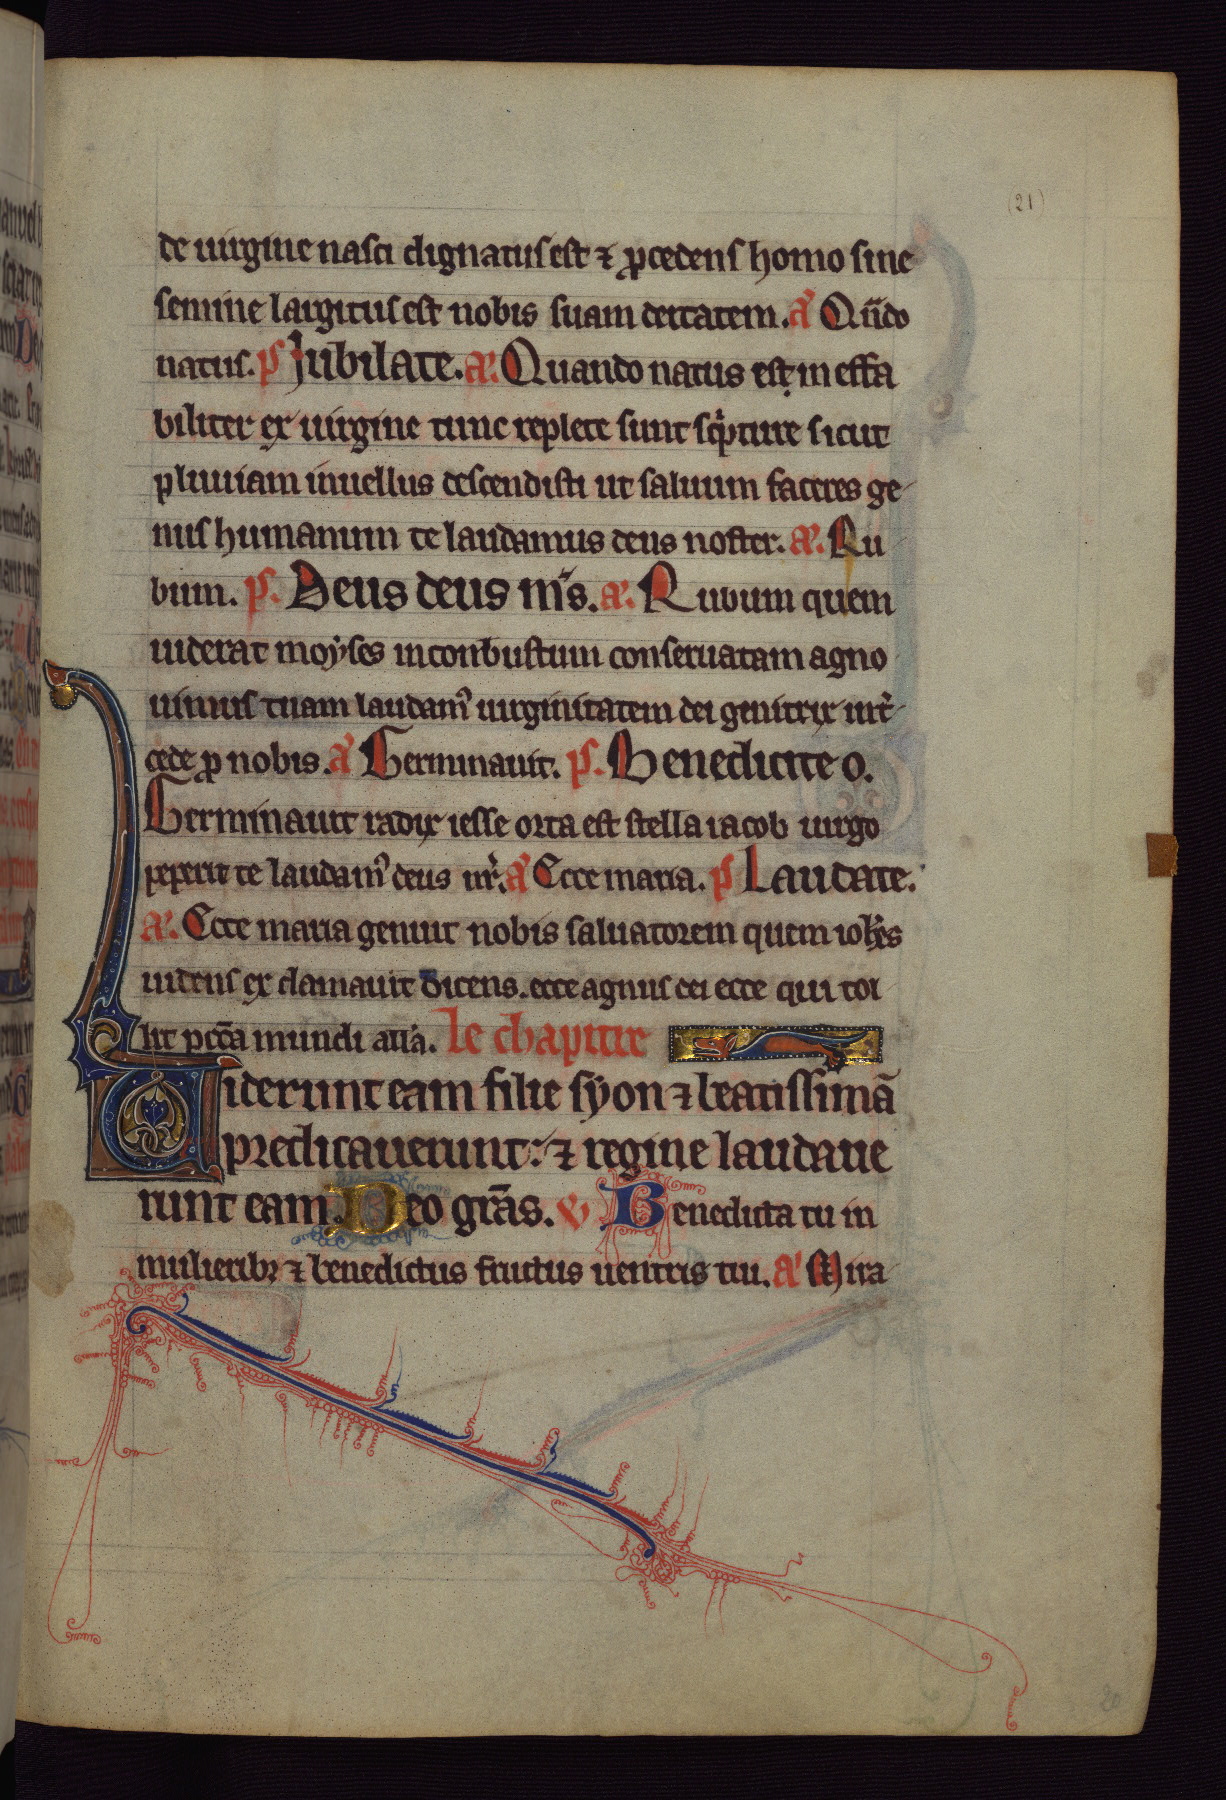 (21)
de uirgine nasci dignatus est ⁊ ꝓcedens homo sine
semine largitus est nobis suam deitatem. a᷒ Qn̄do
natus. ps Jubilate. an̄. Quando natus est ineffa
biliter ex uirgine tunc replete sunt scͥpture sicut
pluuiam inuellus descendisti ut saluum faceres ge-
nus humanum te laudamus deus noster. an̄. Ru
bum. ps. Deus deus mͥs. an̄. Rubum quem
uiderat moyses inconbustum conseruatam agno
uimus tuam laudamꝰ uirginitatem dei genitrix int̄-
cede ꝓ nobis. a᷒ Germinauit. ps. Benedicite o.
Germinauit radix iesse orta est stella iacob uirgo
peperit te laudamꝰ deus nr̄. a᷒ Ecce maria. ps Laudate.
an̄. Ecce maria genuit nobis saluatorem quem ioh̄es
uidens ex clamauit dicens. ecce agnus dei ecce qui tol
lit pcc̄a mundi all'a. le chapitre
Uiderunt eam filie syon ⁊ beatissimā
predicauerunt: ⁊ regine laudaue
runt eam. Deo grās. ℣ Benedicta tu in
mulieribꝫ ⁊ benedictus fructus uentris tui. a᷒ Mira
20